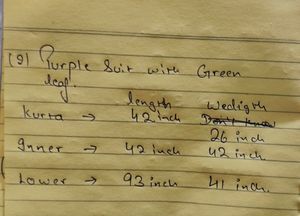 (9) Purple Suit with Green
leaf.
length Wedigth
Kurta → 42 inch Don't know
26 inch
Inner → 42 inch 42 inch.
Lower → 93 inch 41 inch.